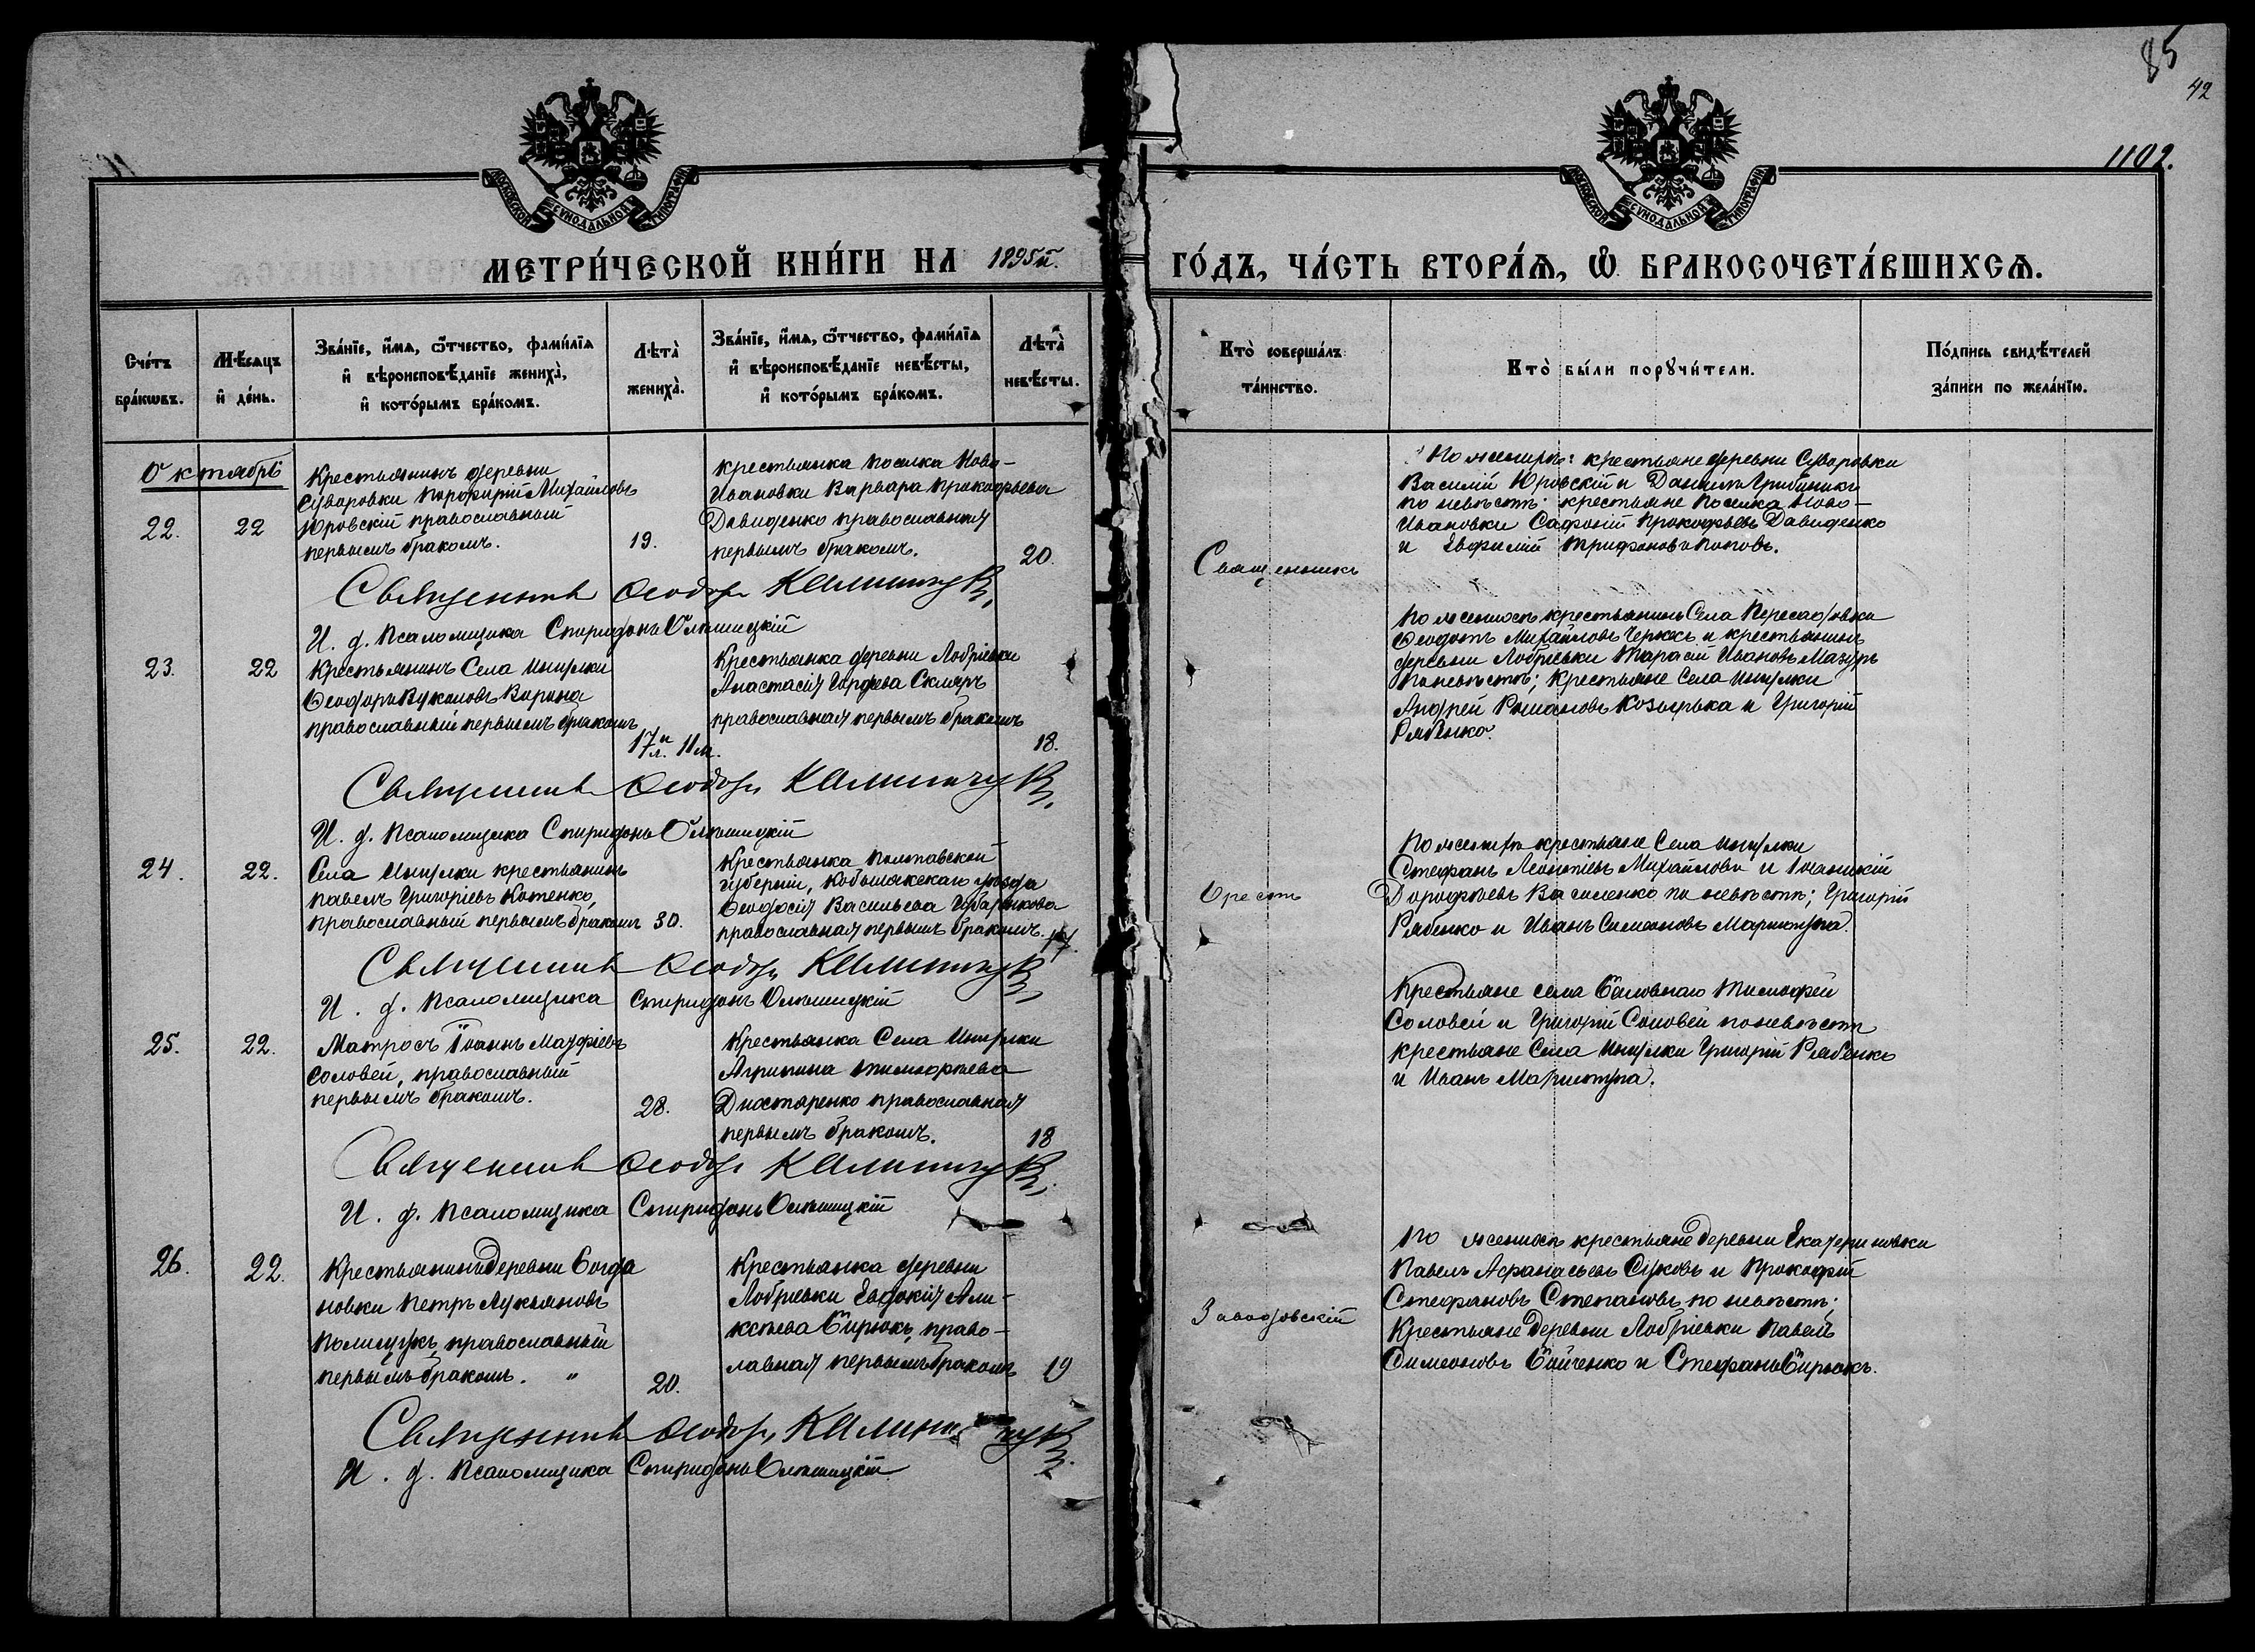 85
42
1102.
МОСКОВСКОЙ СѴНОДАЛЬНОЙ ТИПОГРАФІИ
МОСКОВСКОЙ СѴНОДАЛЬНОЙ ТИПОГРАФІИ
МЕТРИ́ЧЕСКОЙ КНИ́ГИ НА 1895й. ГО́ДЪ, ЧА́СТЬ ВТОРА́Ѧ, Ѽ БРАКОСОЧЕТА́ВШИХСѦ.
Сче́тъ бра́кѡвъ.
Мѣ́сяцъ и҆ де́нь.
Зва́нїе, и҆́мѧ, ѻ҆́тчество, фами́лїѧ и҆ вѣроисповѣ́данїе жениха̀, и҆ кото́рымъ бра́комъ.
Лѣта̀ жениха̀.
Зва́нїе, и҆́мѧ, ѻ҆́тчество, фами́лїѧ и҆ вѣроисповѣ́данїе невѣ́сты, и҆ кото́рымъ бра́комъ.
Лѣта̀ невѣ́сты.
Кто̀ соверша́лъ та́инство.
Кто̀ бы́ли порꙋчи́тели.
По́дпись свидѣ́телей за́писи по жела́нїю.
Октябрь
22.
22
Крестьянинъ деревни
Суворовки Порфирій Михайловъ
Юровскій православный
первымъ бракомъ.
19.
крестьянка поселка Ново-
Ивановки Варвара Прокофьева
Давиденко православная
первымъ бракомъ.
20.
По женихѣ: крестьяне деревни Суворовки
Василій Юровскій и Даниилъ Грибиникъ
по невѣстѣ: крестьяне поселка Ново-
Ивановки Сафоній Прокофьевъ Давиденко
и Евфимій Трифоновъ Поповъ.
Священникъ
Священникъ Ѳеодоръ Калинчукъ
И. д. Псаломщика Спиридонъ Ольшицкій
23.
22
Крестьянинъ Села Ингулки
Ѳеодоръ Вуколовъ Ворона
православный первымъ бракомъ
17 л. и 11 м.
Крестьянка деревни Лобріевки
Анастасія Гордѣева Скляръ
православная первымъ бракомъ
18.
По женихѣ крестьянинъ Села Пересадовки
Ѳеодотъ Михайловъ Черкесъ и крестьянинъ
деревни Лобріевки Тарасій Ивановъ Мазуръ
по невѣстѣ; крестьяне Села Ингулки
Андрей Романовъ Козырька и Григорій
Рябенко.
Священникъ Ѳеодоръ Калинчукъ
И. д. Псаломщика Спиридонъ Ольшицкій
24.
22.
Села Ингулки крестьянинъ
Павелъ Григоріевъ Котенко,
православный первымъ бракомъ
30.
Крестьянка Полтавской
губерніи, Кобылякскаго уѣзда
Ѳеодосія Васильева Губаренкова
православная первымъ бракомъ.
17.
По женихѣ крестьяне Села Ингулки
Стефанъ Леонтіевъ Михайловъ и Іоанникій
Дорофѣевъ Василенко по невѣстѣ; Григорій
Рябенко и Иванъ Симеоновъ Маринуха.
Орестъ
Священникъ Ѳеодоръ Калинчукъ
И. д. Псаломщика Спиридонъ Ольшицкій
25.
22.
Матросъ Іоаннъ
Соловей, православный
первымъ бракомъ.
28.
Крестьянка Села Ингулки
Агрипина Тимофѣева
православная
первымъ бракомъ.
18
Крестьяне села Тимофей
Соловей и Григорій Соловей по невѣстѣ
крестьяне Села Ингулки Григорій Рябенко
и Иванъ Маринуха.
Священникъ Ѳеодоръ Калинчукъ
И. д. Псаломщика Спиридонъ Ольшицкій
26.
22.
Крестьянинъ Деревни Богда
новки Петръ Лукьяновъ
Полищукъ, православный
первымъ бракомъ. "
20.
Крестьянка деревни
Лобріевки Евдокія Але-
ксѣева Бирюкъ, право-
лавная первымъ бракомъ
19
По женихѣ крестьяне Деревни Екатериновки
Павелъ Афанасьевъ Суковъ и Прокофій
Стефановъ Степановъ по невѣстѣ;
Крестьяне Деревни Лобріевки Павелъ
Симеоновъ Бойченко и Стефанъ Бирюкъ.
Заводовскій
Священникъ Ѳеодоръ Калинчукъ
И. д. Псаломщика Спиридонъ Ольшицкій